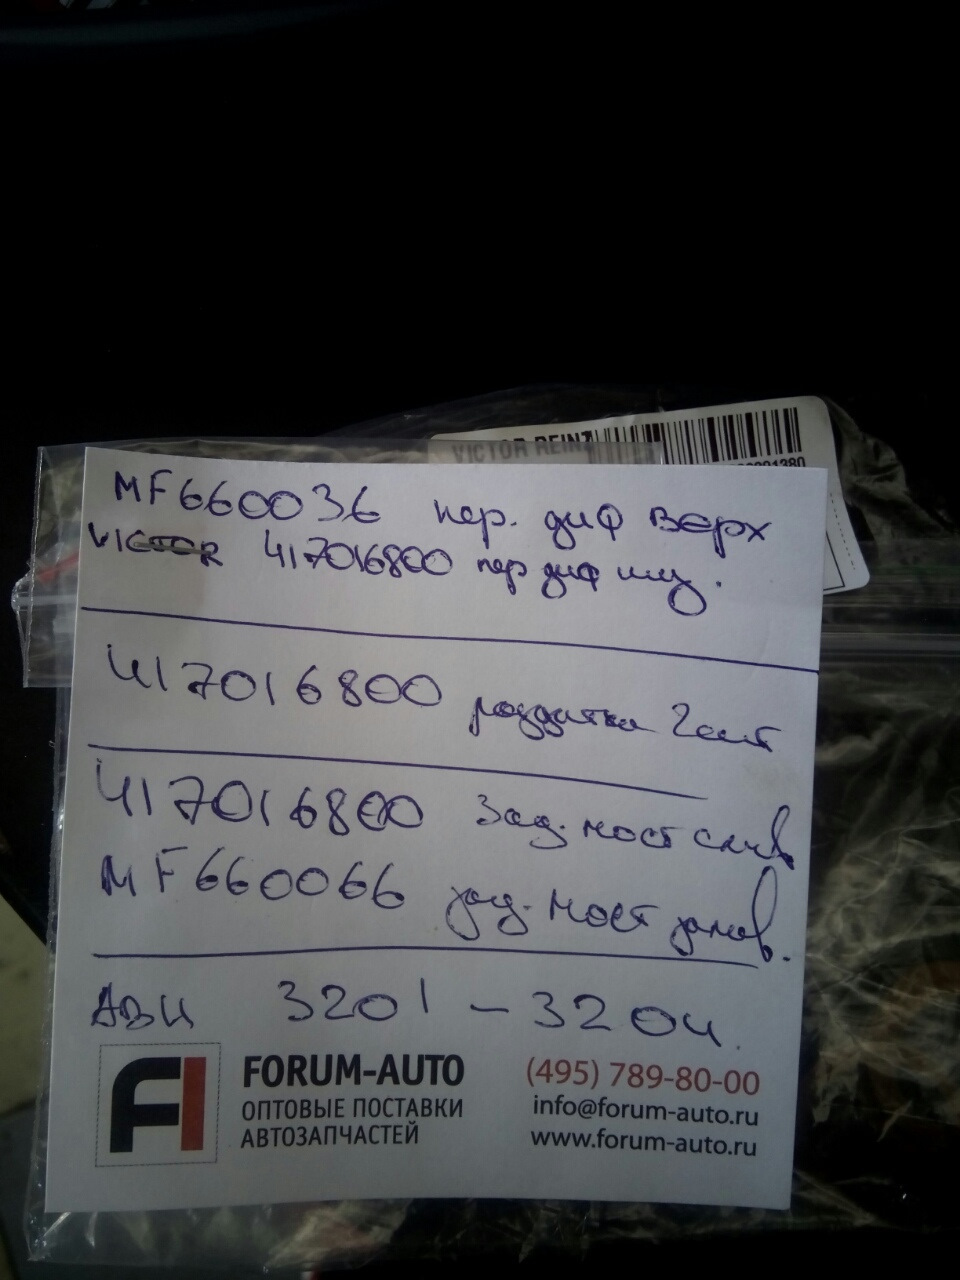 VICTOR REINZ
MF660036 пер. диф верх
VICTOR 417016800 пер диф низ.
417016800 раздатка 2шт
417016800 Зад. мост слив
MF660066 зад. мост залив.
АВИ 3201 - 3204
FORUM-AUTO
ОПТОВЫЕ ПОСТАВКИ
АВТОЗАПЧАСТЕЙ
(495) 789-80-00
info@forum-auto.ru
www.forum-auto.ru